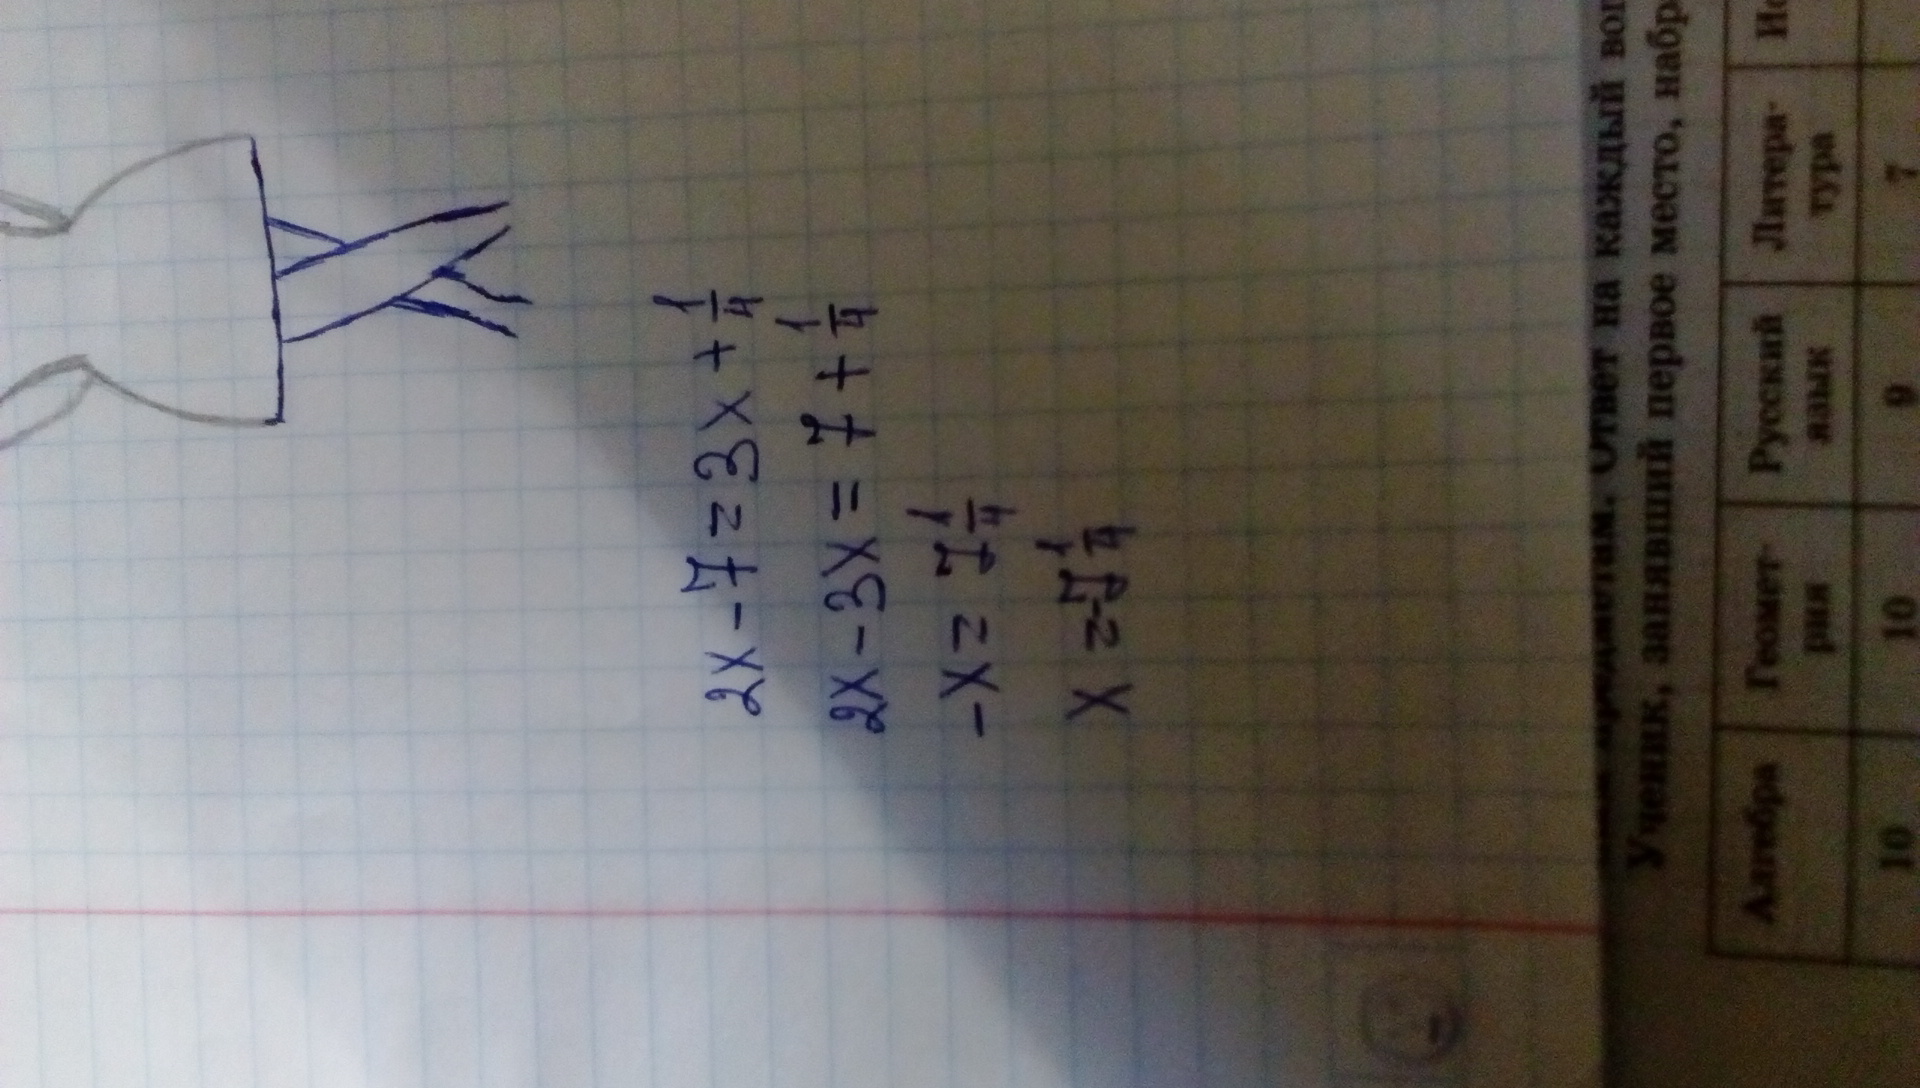 2x - 7 = 3x + 1/4
2x - 3x = 7 + 1/4
-x = 7 1/4
x = -7 1/4
Ответ на каждый
Ученик, занявший первое место,
Алгебра Геомет- рия Русский язык Литера- тура
10 10 9 7